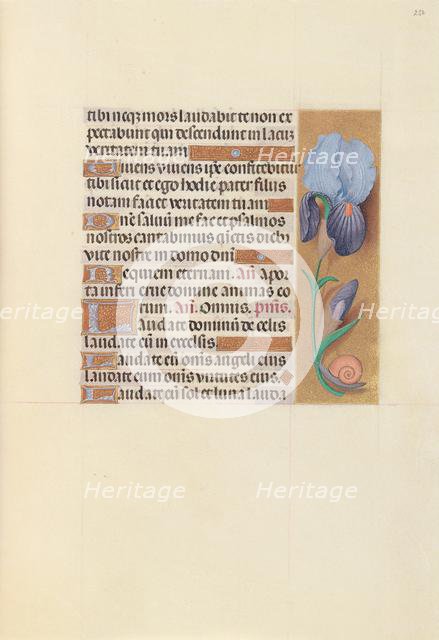 252
tibi neqz mors laudabit te non ex
pectabunt qui descendunt in lacum
veritatem tuam
Vivens vivens ipe confitebitur
tibi sicut et ego hodie pater filiis
notam faciet veritatem tuam
Dne salvum me fac et psalmos
nostros cantabimus cunctis diebus
vite nostre in domo dni
Requiem eternam. An. A por
ta inferi erue domine animas eo
rum. An. Omnis. psms.
Laudate dominum de celis
laudate eum in excelsis
Laudate eum omnes angeli eius
laudate eum omnes virtutes eius
Laudate eum sol et luna lauda
Heritage
Heritage
Heritage
Heritage
Heritage
Heritage